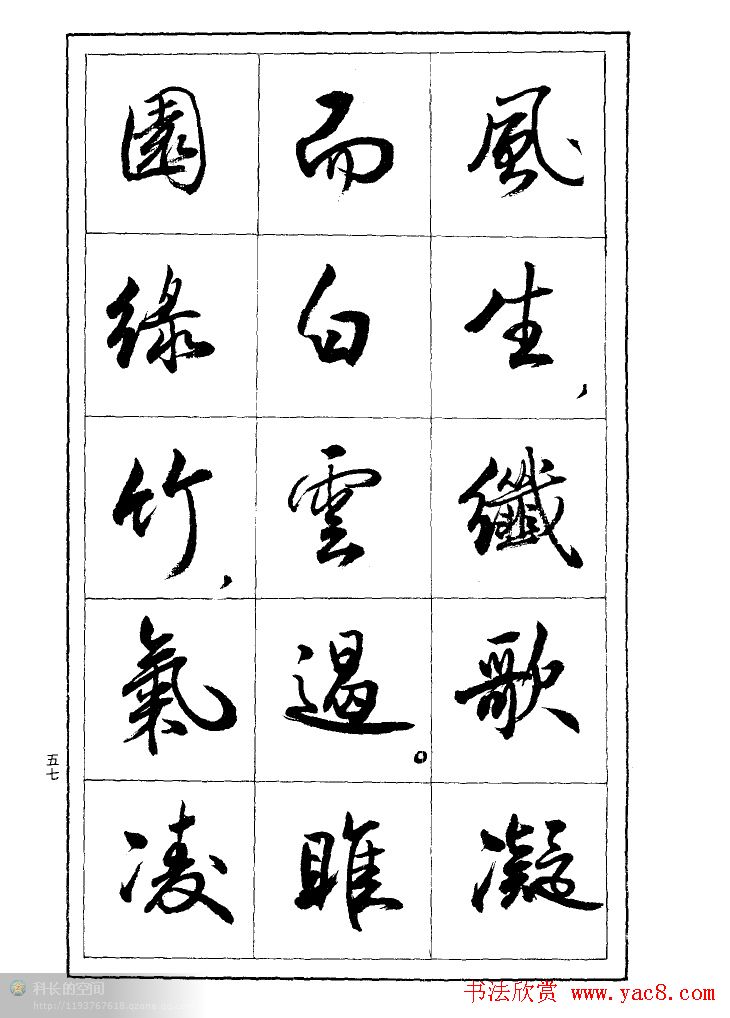 風生，纖歌凝
而白雲遏。睢
園綠竹，氣凌
五七
科长的空间
书法欣赏 www.yac8.com